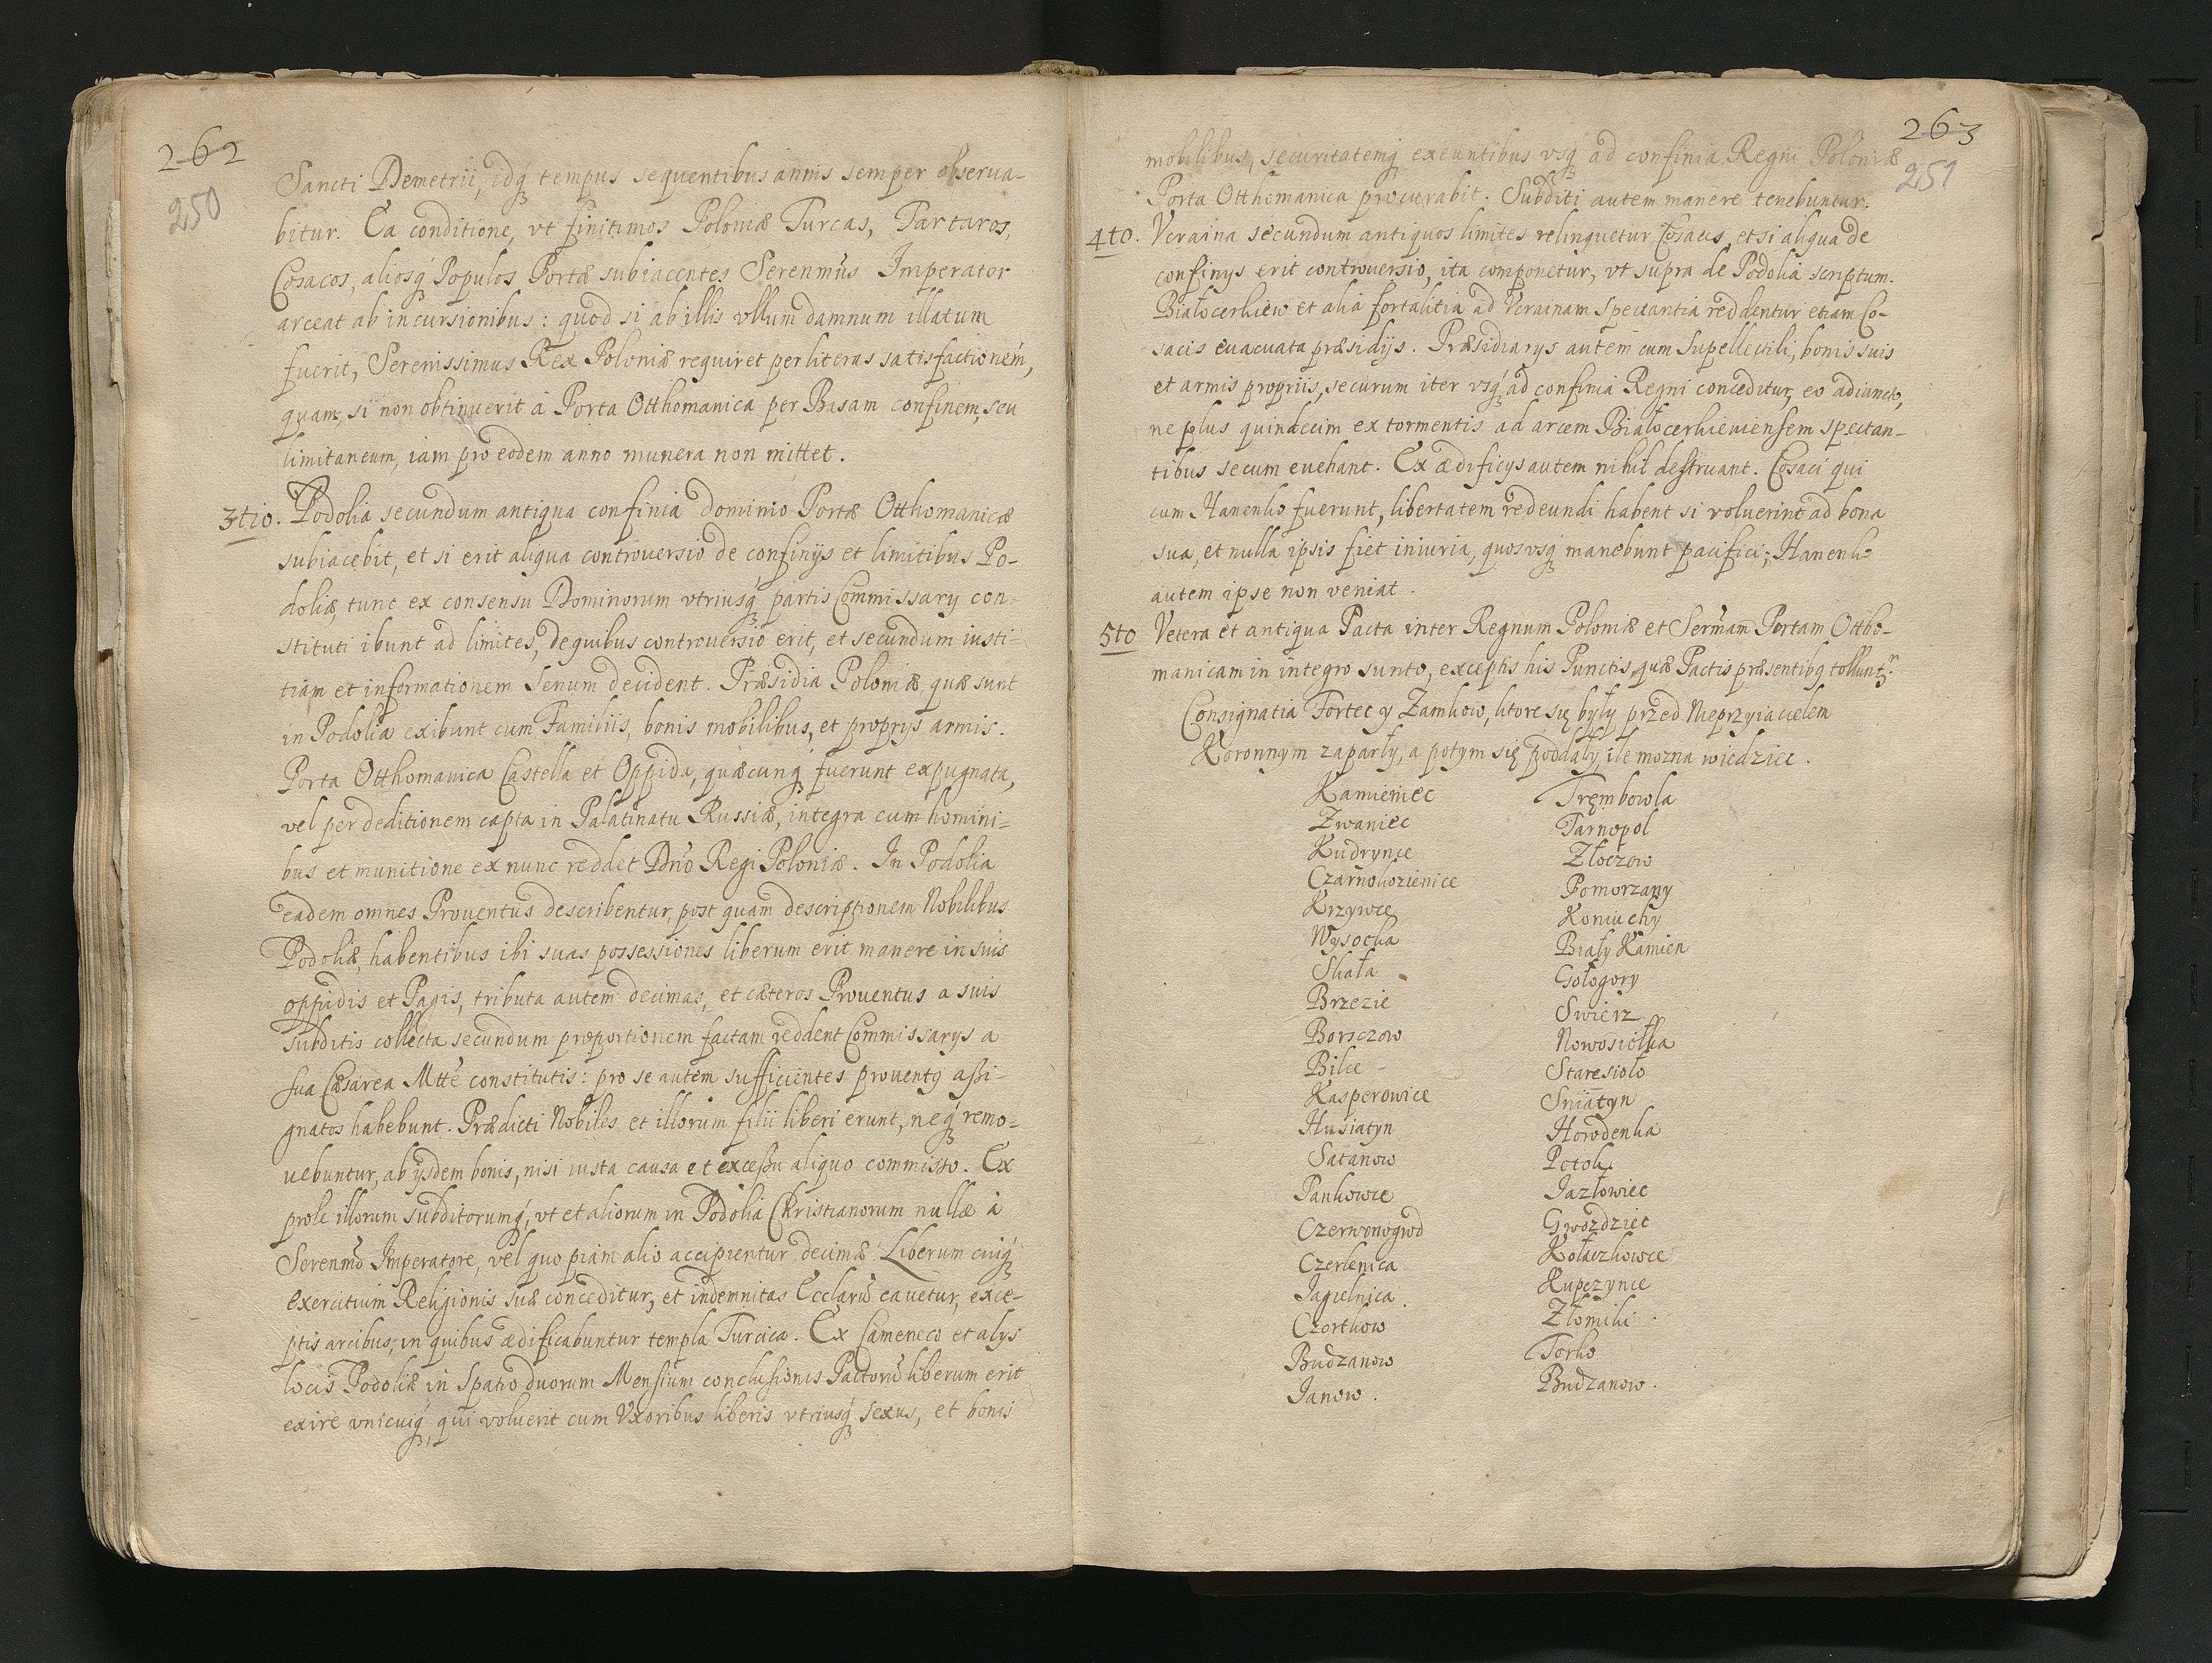 262
250
Sancti Demetrii, idq́ tempus sequentibus annis semper obserua-
bitur. Ea conditione, vt finitimos Poloniæ Turcas, Tartaros,
Cosacos, aliosq́ Populos Portæ subiacentes Serenm̃us Imperator
arceat ab incursionibus: quod si ab illis vllum damnum illatum
fuerit, Serenissimus Rex Poloniæ requiret per literas satisfactionem,
quam, si non obtinuerit à Porta Otthomanica per Basam confinem, seu
limitaneum, iam pro eodem anno munera non mittet.
3tio. Podolia secundum antiqua confinia dominio Portæ Otthomanicæ
subiacebit, et si erit aliqua controuersio de confinijs et limitibus Po-
doliæ, tunc ex consensu Dominorum vtriusq́ partis Commissary con-
stituti ibunt ad limites, de quibus controuersio erit, et secundum iusti-
tiam et informationem Senum decident. Præsidia Poloniæ, quæ sunt
in Podolia exibunt cum Familiis, bonis mobilibus, et proprys armis.
Porta Otthomanica Castella et Oppida, quæcunq́ fuerunt expugnata,
vel per deditionem capta in Palatinatu Russiæ, integra cum homini-
bus et munitione ex nunc reddet Dño Regi Poloniæ. In Podolia
eadem omnes Prouentus describentur, post quam descriptionem Nobilibus
Podoliæ, habentibus ibi suas possessiones liberum erit manere in suis
oppidis et Pagis, tributa autem decimas, et cæteros Prouentus a suis
subditis collecta secundum proportionem factam reddent Commissarys a
sua Cæsarea Mtte constitutis: pro se autem sufficientes prouentq assi-
gnatos habebunt. Prædicti Nobiles et illorum filii liberi erunt, neq́ remo-
uebuntur, ab ijsdem bonis, nisi iusta causa et excessu aliquo commisso. Ex
prole illorum subditorumq́, vt et aliorum in Podolia Christianorum nullæ à
Serenmõ Imperatore, vel quo piam alio accipientur decimæ. Liberum cuiq́
exercitium Religionis suæ conceditur, et indemnitas Ecclarũ cauetur, exce-
ptis arcibus, in quibus ædificabuntur templa Turcica. Ex Cameneco et alys
locis Podoliæ in spatio duorum Mensium conclusionis Pactorũ liberum erit
exire vnicuiq́, qui voluerit cum Vxoribus liberis vtriusq́ sexus, et bonis
263
251
mobilibus, securitatemq́ exeuntibus vsq́ ad confinia Regni Poloniæ
Porta Otthomanica procurabit. Subditi autem manere tenebuntur.
4to. Vcraina secundum antiquos limites relinquetur Cosacis, et si aliqua de
confinys erit controuersio, ita componetur, vt supra de Podolia scriptum.
Białocerkiew et alia fortalitia ad Vcrainam spectantia reddentur etiam Co-
sacis euacuata præsidijs. Præsidiarys autem cum supellectili, bonis suis
et armis propriis, securum iter vsq́ ad confinia Regni conceditur, eo adiuncto,
ne plus quindecim ex tormentis ad arcem Białocerkieuiensem spectan-
tibus secum euehant. Ex ædificys autem nihil destruant. Cosaci qui
cum Hanenko fuerunt, libertatem redeundi habent si voluerint ad bona
sua, et nulla ipsis fiet iniuria, quosvsq́ manebunt pacifici; Hanenko
autem ipse non veniat.
5to Vetera et antiqua Pacta inter Regnum Poloniæ et Serm̃am Portam Ottho-
manicam in integro sunto, exceptis his Punctis, quæ Pactis præsentibq tolluntr.
Consignatia Fortec y Zamkow, ktore się były przed Nieprzyiacielem
Koronnym zaparły, a potym się poddały, ile mozna wiedziec.
Kamieniec
Zwaniec
Kudrynce
Czarnokozienice
Krzywce
Wysocka
Skała
Brzezie
Borsczow
Bilce
Kasperowice
Husiatyn
Satanow
Pankowce
Czerwonogrod
Czerlenica
Iagielnica
Czortkow
Budzanow
Ianow.
Trębowla
Tarnopol
Złoczow
Pomorzany
Koniuchy
Biały Kamien
Gołogory
Swierz
Nowosiołka
Staresioło
Sniatyn
Horodenka
Potok
Jazłowiec
Gwozdziec
Kołaczkowce
Kupczynce
Złomiki
Torko
Budzanow.